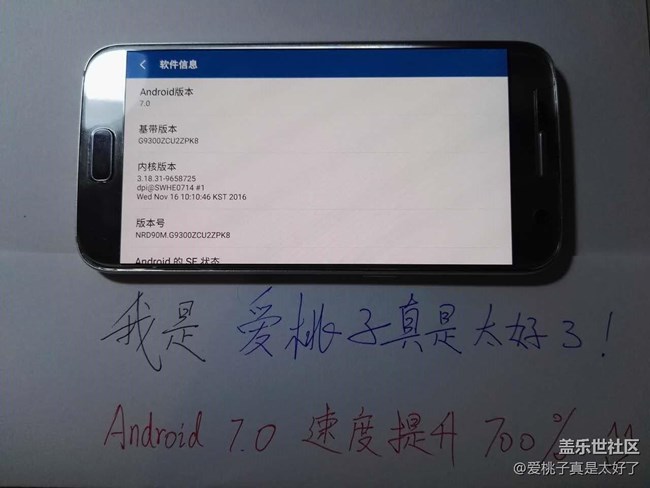 软件信息
Android版本
7.0
基带版本
G9300ZCU2ZPK8
内核版本
3.18.31-9658725
dpi@SWHE0714 #1
Wed Nov 16 10:10:46 KST 2016
版本号
NRD90M.G9300ZCU2ZPK8
Android 的 SE 状态
我是 爱桃子真是太好了!
Android 7.0 速度提升 700%
盖乐世社区
@爱桃子真是太好了